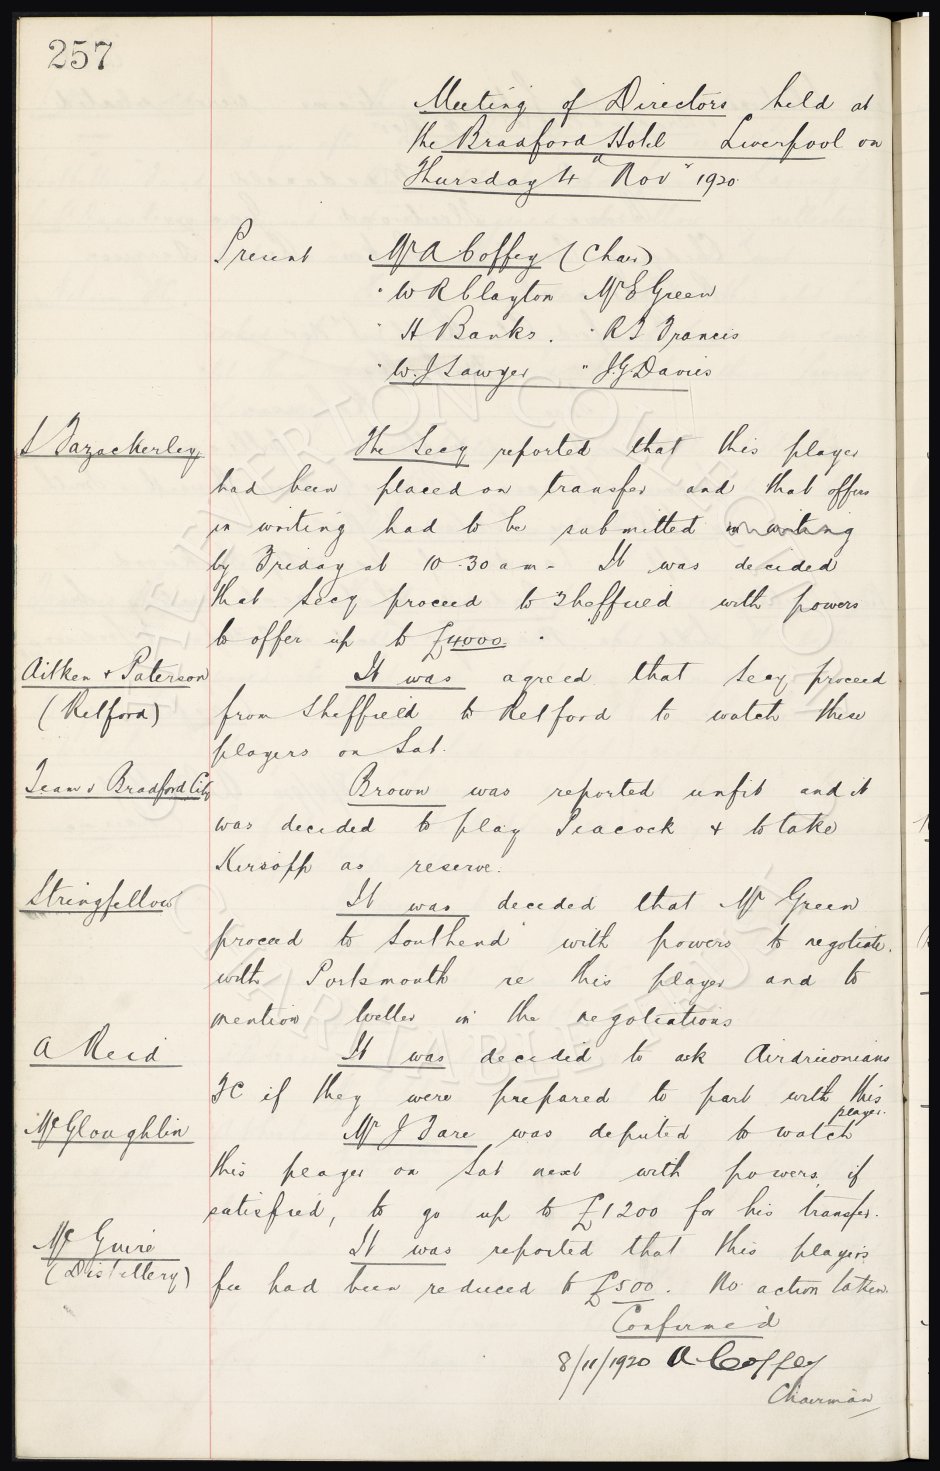 257
Meeting of Directors held at
the Bradford Hotel Liverpool on
Thursday 4" Nov" 1920
Present Mr A Coffey (Chair)
" W R Clayton Mr E Green
" H Banks. " R T Francis
" W. J Sawyer " J. G Davies
S Fazackerley The Secy reported that this player
had been placed on transfer and that offers
in writing had to be submitted in writing
by Friday at 10.30 am - It was decided
that Secy proceed to Sheffield with powers
to offer up to £4000.
Aitken & Paterson It was agreed that Secy proceed
(Retford) from Sheffield to Retford to watch these
players on Sat.
Team v Bradford City Brown was reported unfit and it
was decided to play Peacock & to take
Kirsopp as reserve.
Stringfellow It was decided that Mr Green
proceed to Southend with powers to negotiate
with Portsmouth re this player and to
mention Weller in the negotiations
A Reid It was decided to ask Airdrieonians
FC if they were prepared to part with this
player.
McGloughlin Mr J Fare was deputed to watch
this player on Sat next with powers, if
satisfied, to go up to £1200 for his transfer.
Mc Guire It was reported that this player's
(Distillery) fee had been reduced to £500. No action taken.
Confirmed
8/11/1920 A. Coffey
Chairman